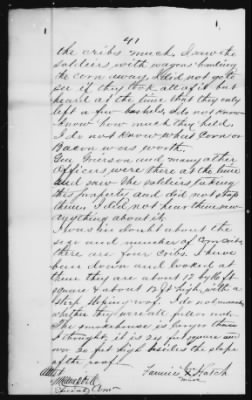 41
the cribs much. I saw the
soldiers with wagons hauling
the corn away. I did not go to
see if they took all of it but
heard at the time that they only
left a few do not know
know how much they held.
I do not know what Corn or
Bacon was worth.
Gen Grierson and many other
Officers were there at the time
and saw the soldiers taking
this property and did not stop
them I did not hear them say
anything about it.
I was in doubt about the
size and number of corn cribs
there are four cribs. I have
been down and looked at
them they are about 12 by 16 ft
square & about 12 ft high, with a
steep sloping roof. I do not remember
whether they were all full or not.
The smokehouse is larger than
I thought, it is 24 feet square and
20 feet high besides the slope
of the roof.
Attest
Fannie Hatch